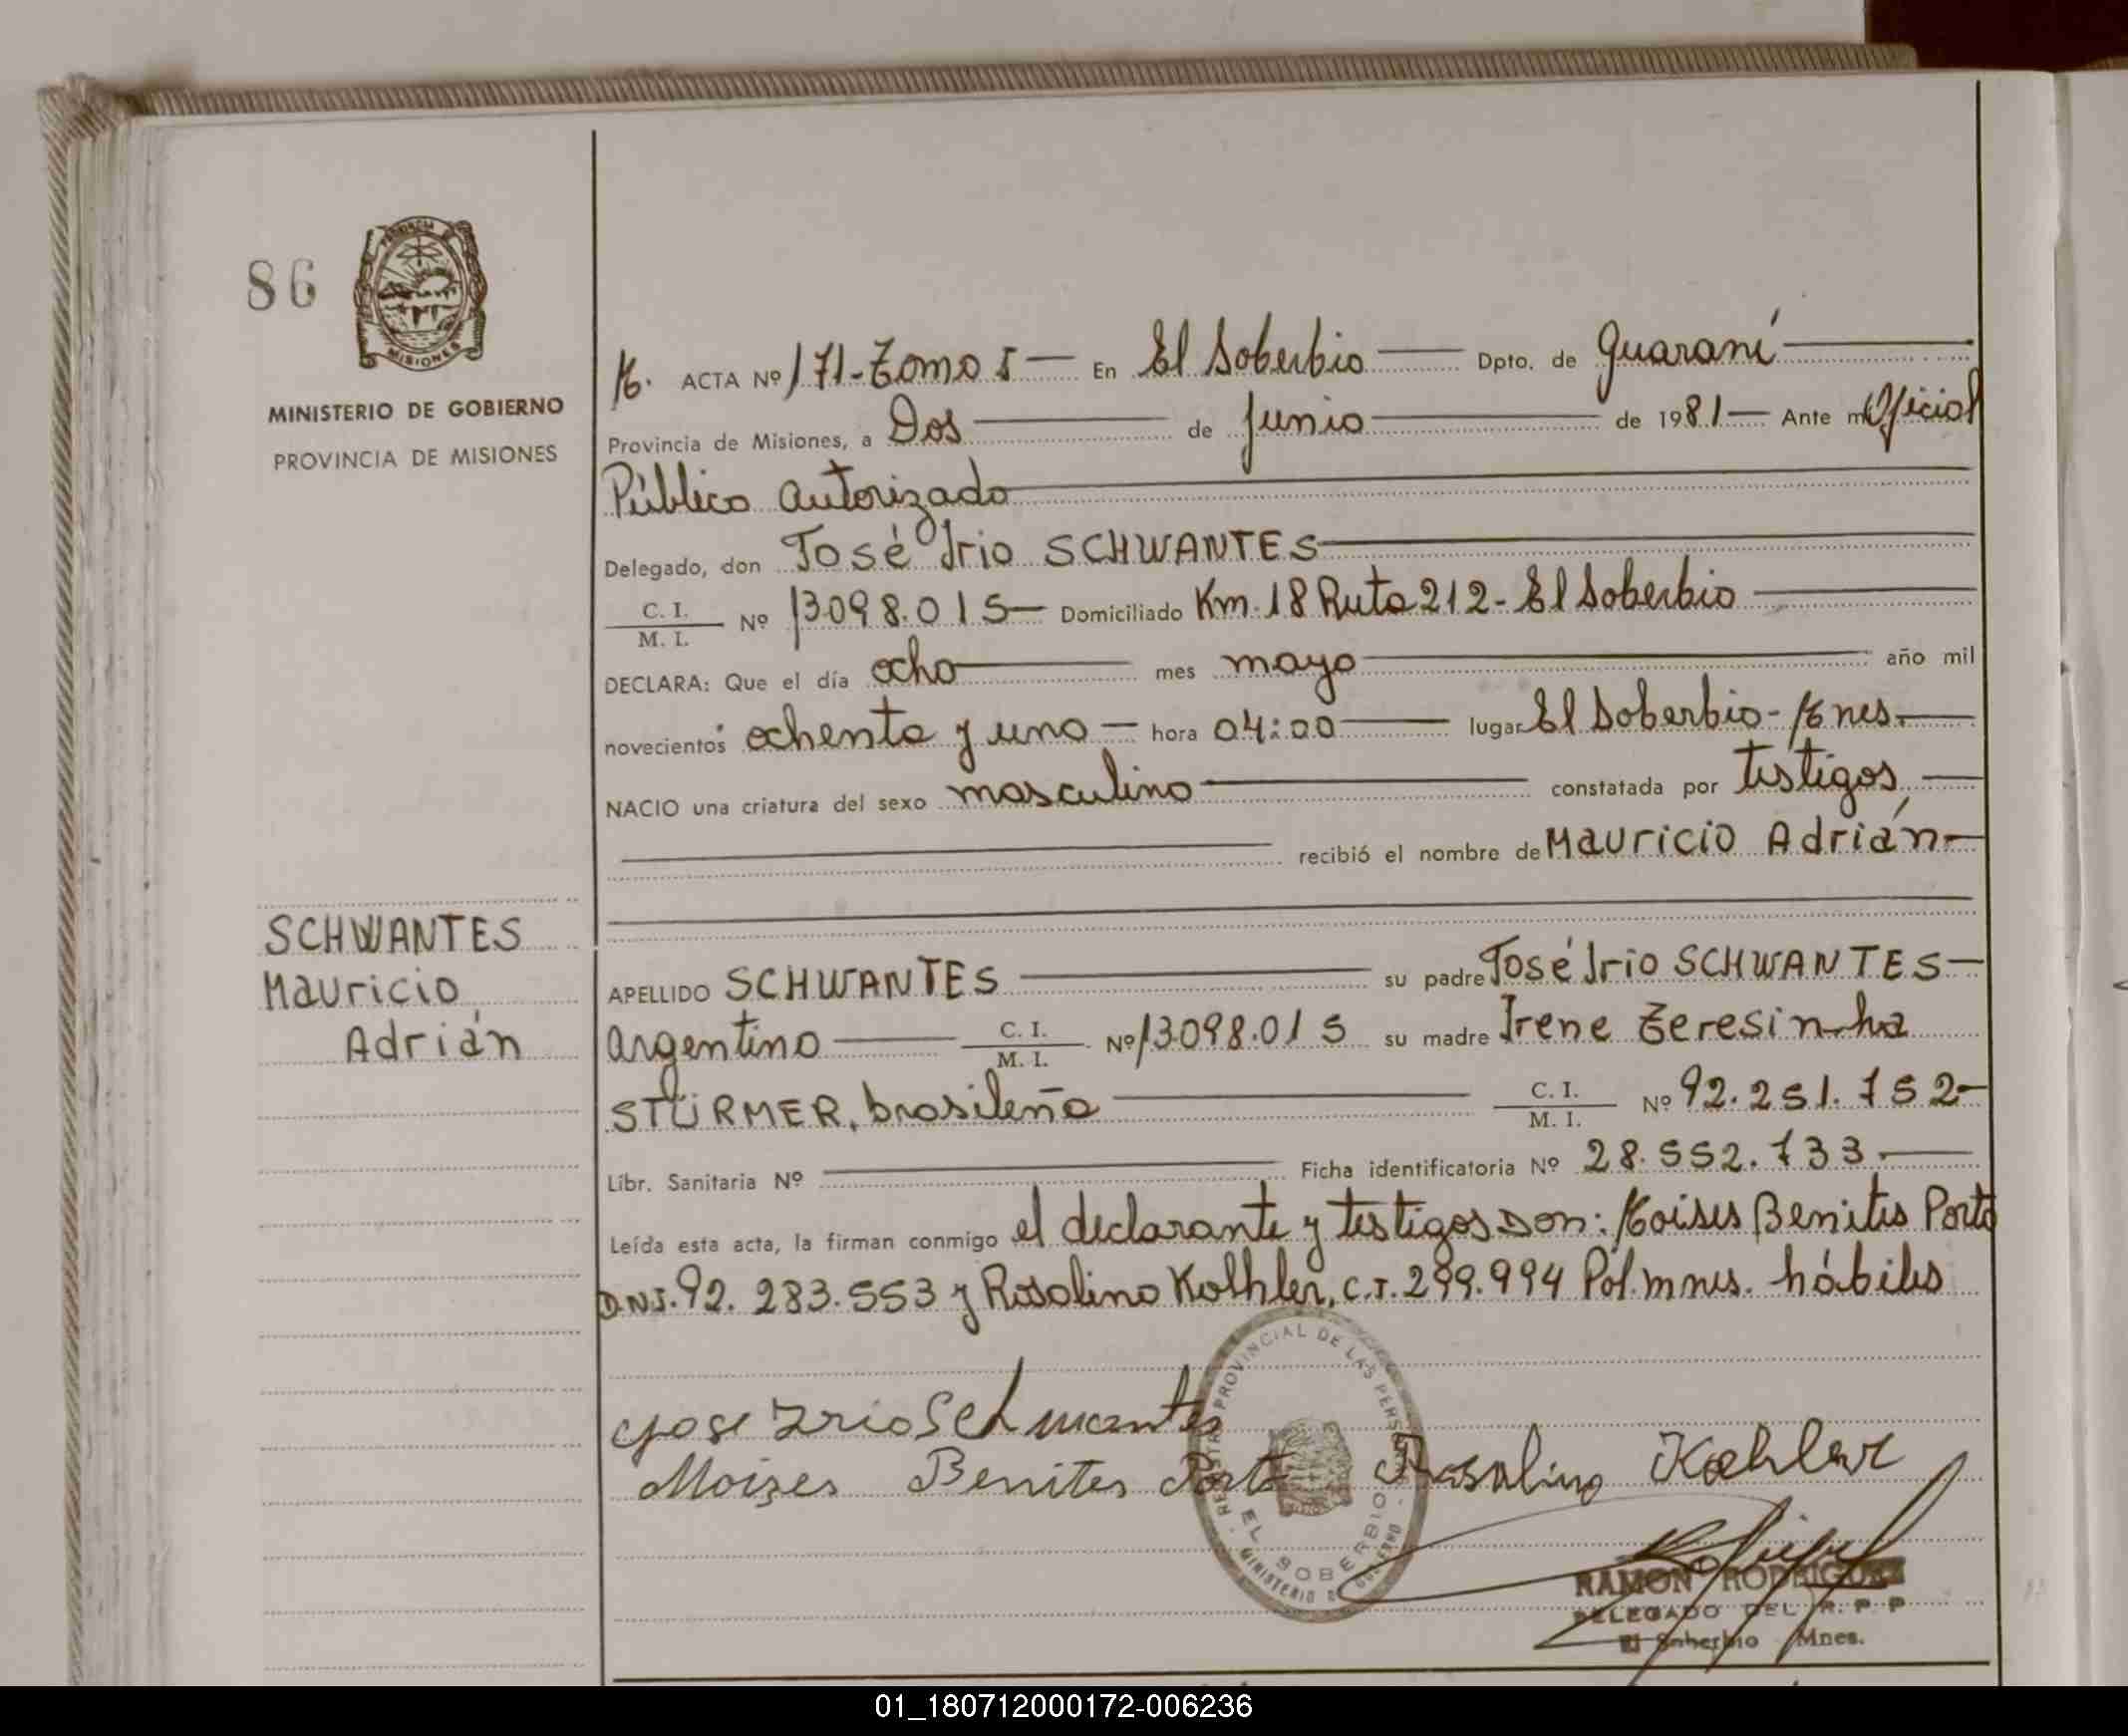 86
PROVINCIA DE
MISIONES
MINISTERIO DE GOBIERNO
PROVINCIA DE MISIONES
M. ACTA Nº 171-Tomo 5 En El Soberbio Dpto. de Guaraní
Provincia de Misiones, a Dos de junio de 1981 Ante mí Oficial
Público autorizado
Delegado, don José Irio SCHWANTES
C. I. / M. I. Nº 13098.015 Domiciliado Km. 18 Ruta 212 - El Soberbio
DECLARA: Que el día ocho mes mayo año mil
novecientos ochenta y uno hora 04:00 lugar El Soberbio - Mnes.
NACIO una criatura del sexo masculino constatada por testigos
recibió el nombre de Mauricio Adrián
SCHWANTES
Mauricio
Adrián
APELLIDO SCHWANTES su padre José Irio SCHWANTES
argentino C. I. / M. I. Nº 13098.015 su madre Irene Teresinha
STÜRMER, brasileña C. I. / M. I. Nº 92.251.752
Libr. Sanitaria Nº Ficha identificatoria Nº 28.552.733.
Leída esta acta, la firman conmigo el declarante y testigos Don: Moises Benites Porto
D.N.I. 92.283.553 y Rosalino Kolhler, C.I. 299.994 Pol. mnes. hábiles
REGISTRO PROVINCIAL DE LAS PERSONAS
EL SOBERBIO
MINISTERIO DE GOBIERNO
Jose Irio Schwantes
Moizes Benites Porto Rosalino Koehler
RAMON RODRIGUEZ
DELEGADO DEL R. P. P
El Soberbio Mnes.
01_180712000172-006236